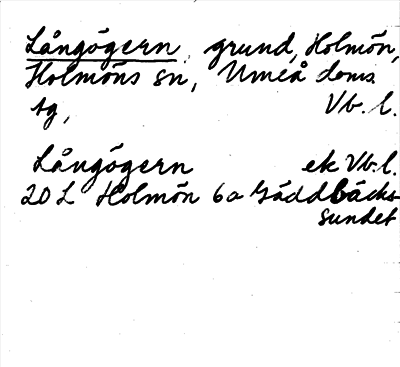 Långögern, grund, Holmön,
Holmöns sn, Umeå doms
tg, Vb. l.
Långögern ek Vb. l.
20 L Holmön 6a Gäddbäcks-
sundet